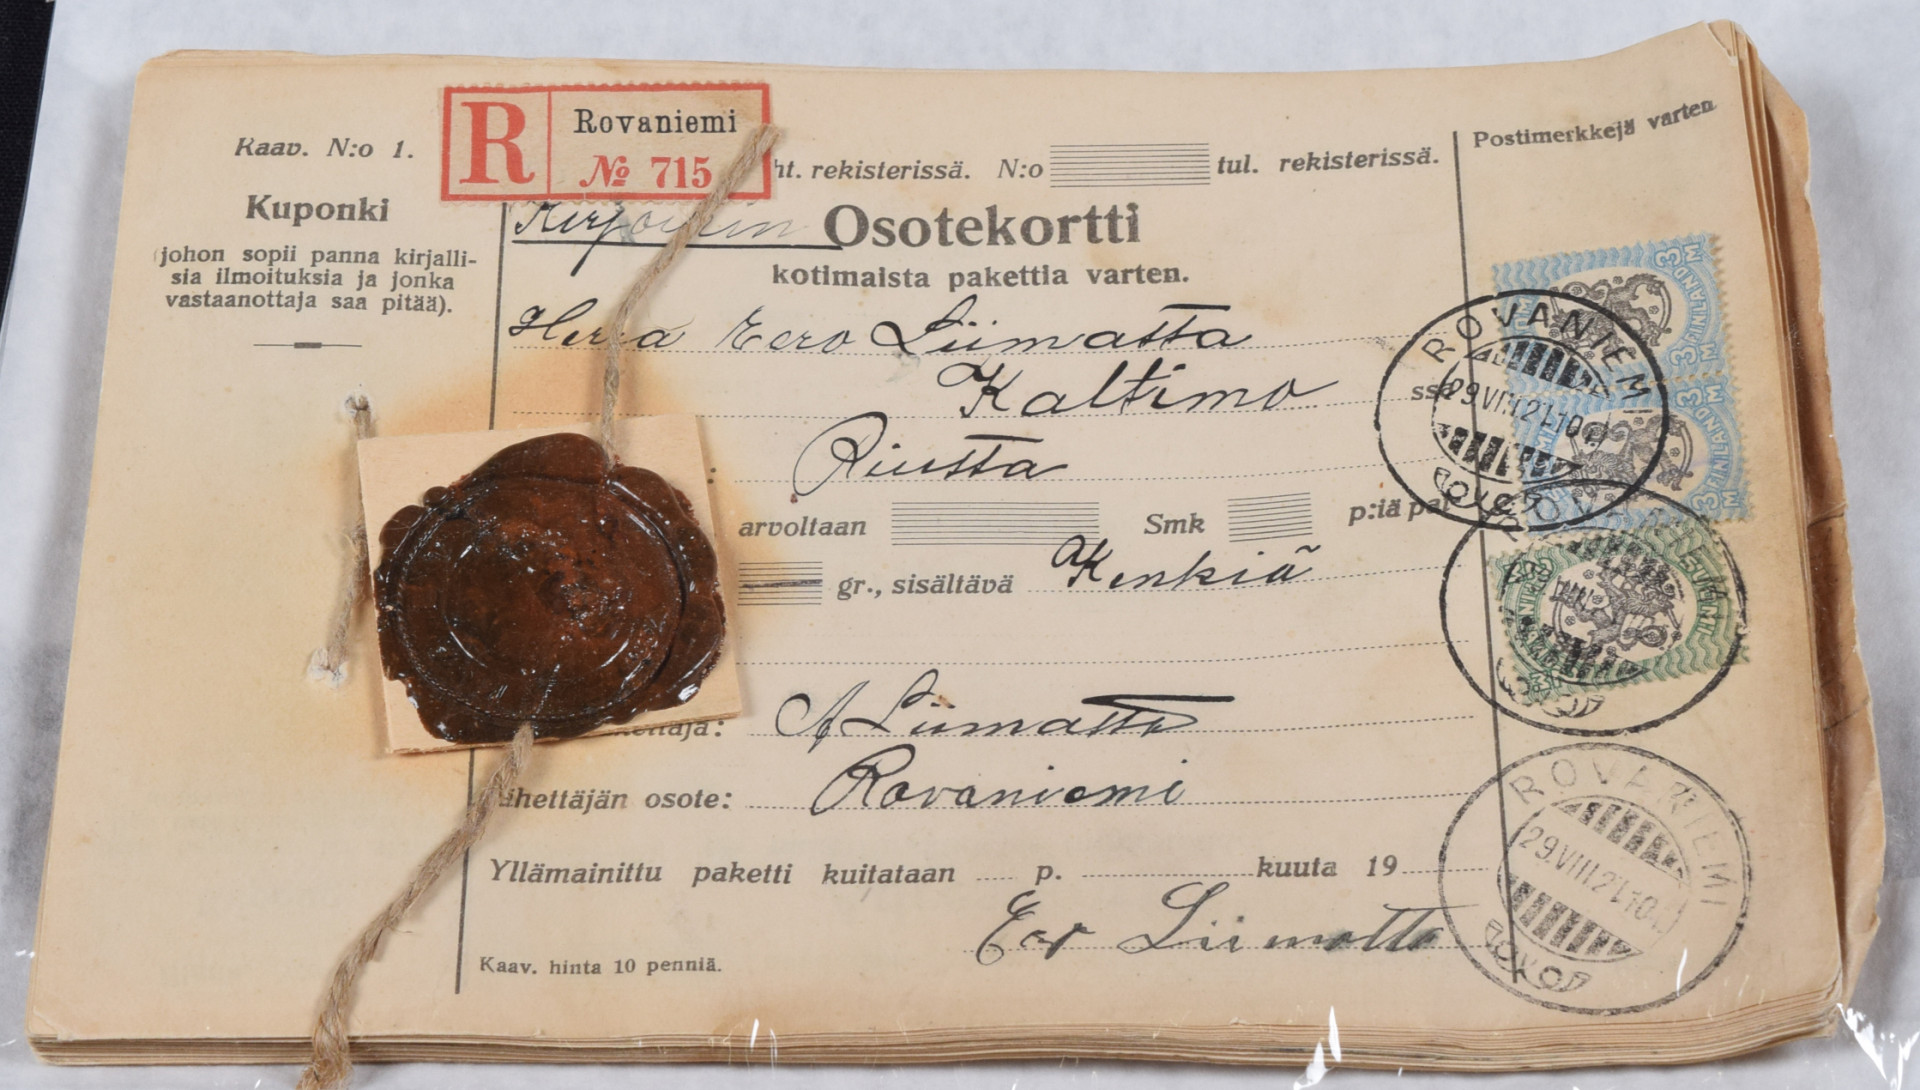 Kaav. N:o 1.
Kuponki
(johon sopii panna kirjalli-
sia ilmoituksia ja jonka
vastaanottaja saa pitää).
R
Rovaniemi
№ 715
ht. rekisterissä. N:o tul. rekisterissä.
Postimerkkejä varten
Osotekortti
kotimaista pakettia varten.
Herra Eero Liimatta
Kaltimo ssa
Riusta
arvoltaan Smk p:iä
gr., sisältävä Kenkiä
A Liimatta
ähettäjän osote: Rovaniemi
Yllämainittu paketti kuitataan p. kuuta 19
Eer Liimatta
Kaav. hinta 10 penniä.
3 M FINLAND 3 M
3 M FINLAND 3 M
ROVANIEMI
29.VIII.21.10
ROVANIEMI
29.VIII.21.10